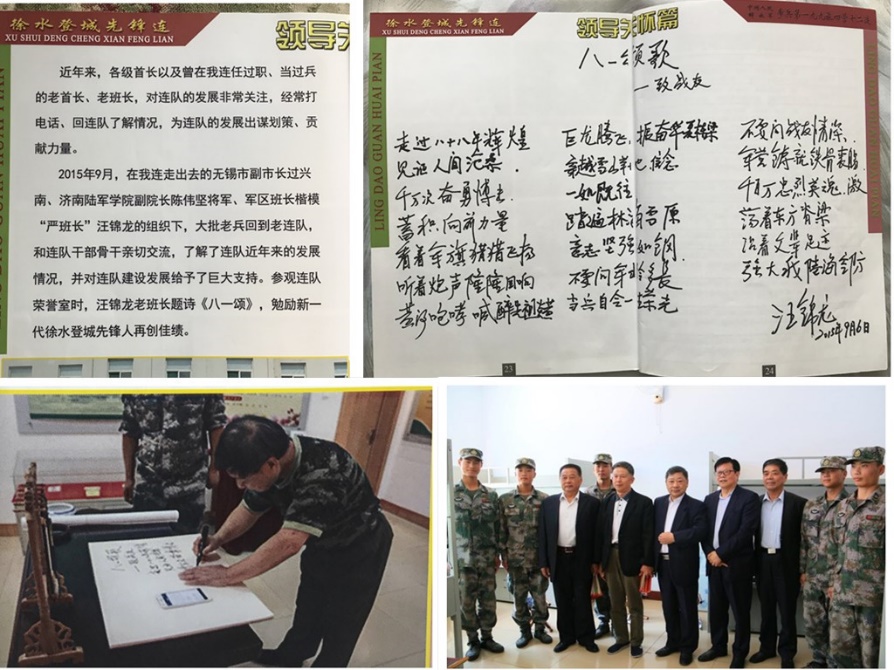 徐水登城先锋连
XU SHUI DENG CHENG XIAN FENG LIAN
领导关
近年来，各级首长以及曾在我连任过职、当过兵
的老首长、老班长，对连队的发展非常关注，经常打
电话、回连队了解情况，为连队的发展出谋划策、贡
献力量。
2015年9月，在我连走出去的无锡市副市长过兴
南、济南陆军学院副院长陈伟坚将军、军区班长楷模
“严班长”汪锦龙的组织下，大批老兵回到老连队，
和连队干部骨干亲切交流，了解了连队近年来的发展
情况，并对连队建设发展给予了巨大支持。参观连队
荣誉室时，汪锦龙老班长题诗《八一颂》，勉励新一
代徐水登城先锋人再创佳绩。
徐水登城先锋连
XU SHUI DENG CHENG XIAN FENG LIAN
领导关怀篇
LING DAO GUAN HUAI PIAN
八一颂歌
一致战友
走过八十八年辉煌
见证人间沧桑
千万次奋勇搏击
蓄积向前力量
看着军旗猎猎飞扬
听着炮声隆隆回响
黄河咆哮喊醒
巨龙腾飞，振奋华夏栋梁
穿越雪山 信念
一如既往
踏遍林海雪原
意志坚强如钢
不要问军龄多长
当兵自会一 荣光
不要问战友情深
军营铸就铁骨柔肠
千百万忠烈英魂，激
荡着东方脊梁
沿着父辈足迹
强大我陆海空防
汪锦龙
2015年9月6日
23
24